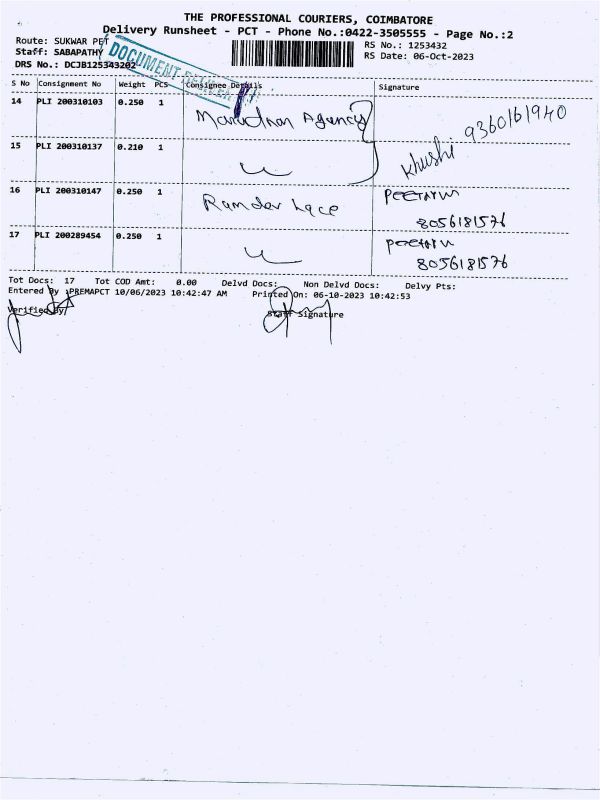 THE PROFESSIONAL COURIERS, COIMBATORE
Delivery Runsheet - PCT - Phone No.:0422-3505555 - Page No.:2
Route: SUKWAR PET
RS No.: 1253432
Staff: SABAPATHY
RS Date: 06-Oct-2023
DRS No.: DCJB125343202
DOCUMENT
S No Consignment No Weight PCS Consignee Details Signature
14 PLI 200310103 0.250 1 Agency 9360161940
15 PLI 200310137 0.210 1 Khushi
16 PLI 200310147 0.250 1 Ramdev Lace
8056181576
17 PLI 200289454 0.250 1
8056181576
Tot Docs: 17 Tot COD Amt: 0.00 Delvd Docs: Non Delvd Docs: Delvy Pts:
Entered By :PREMAPCT 10/06/2023 10:42:47 AM Printed On: 06-10-2023 10:42:53
Verified By Staff Signature